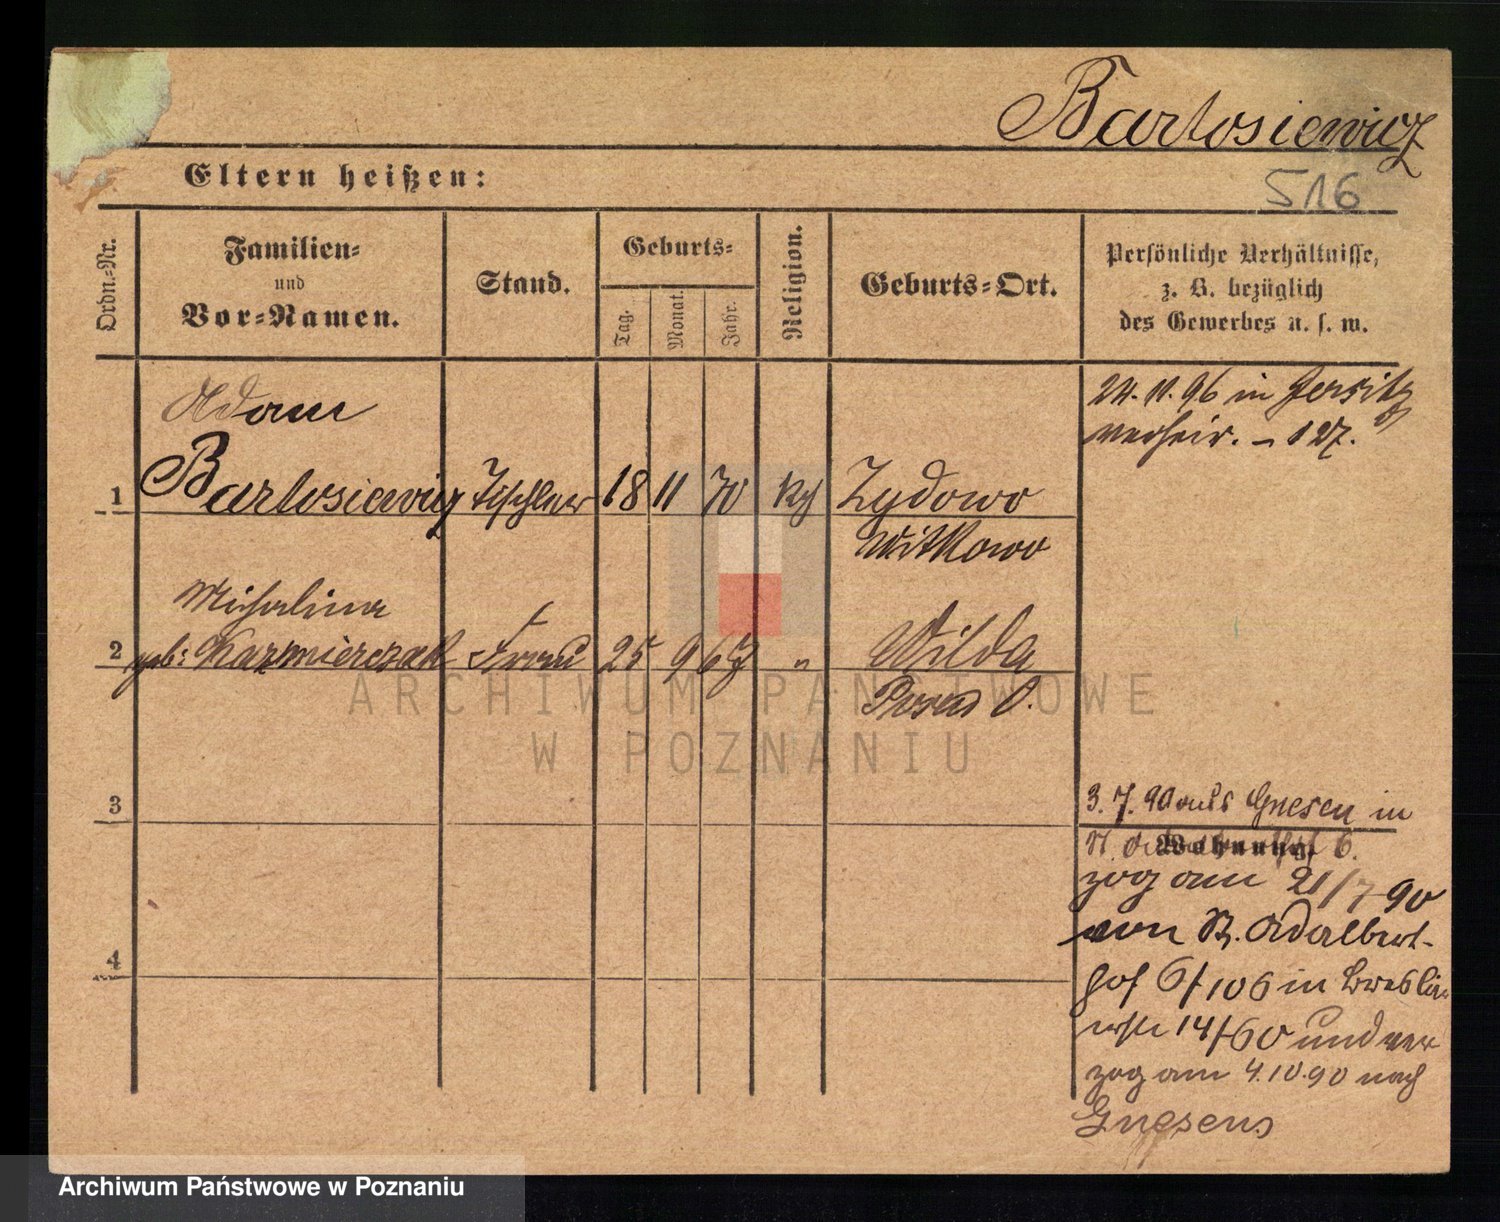 Bartosiewicz
Eltern heißen:
516
Ordn.-Nr.
Familien-
und
Vor-Namen.
Stand.
Geburts-
Tag.
Monat.
Jahr.
Religion.
Geburts-Ort.
Persönliche Verhältnisse,
z. B. bezüglich
des Gewerbes u. s. w.
24. 11. 96 in Jersitz
verheir. – 127.
Adam
1 Bartosiewicz Tischler 18 11 70 kth Zydowo
Witkowo
Michalina
2 geb: Kazmierczak Frau 25 9 67 " Wilda
Posen O.
3
3. 7. 90 aus Gnesen in
Wohnung.
6.
zog am 21/7 90
von St. Adalbert-
4
hof 6/106 in Breslau
14/60 und ver
zog am 4.10.90 nach
Gnesen
ARCHIWUM PAŃSTWOWE
W POZNANIU
Archiwum Państwowe w Poznaniu